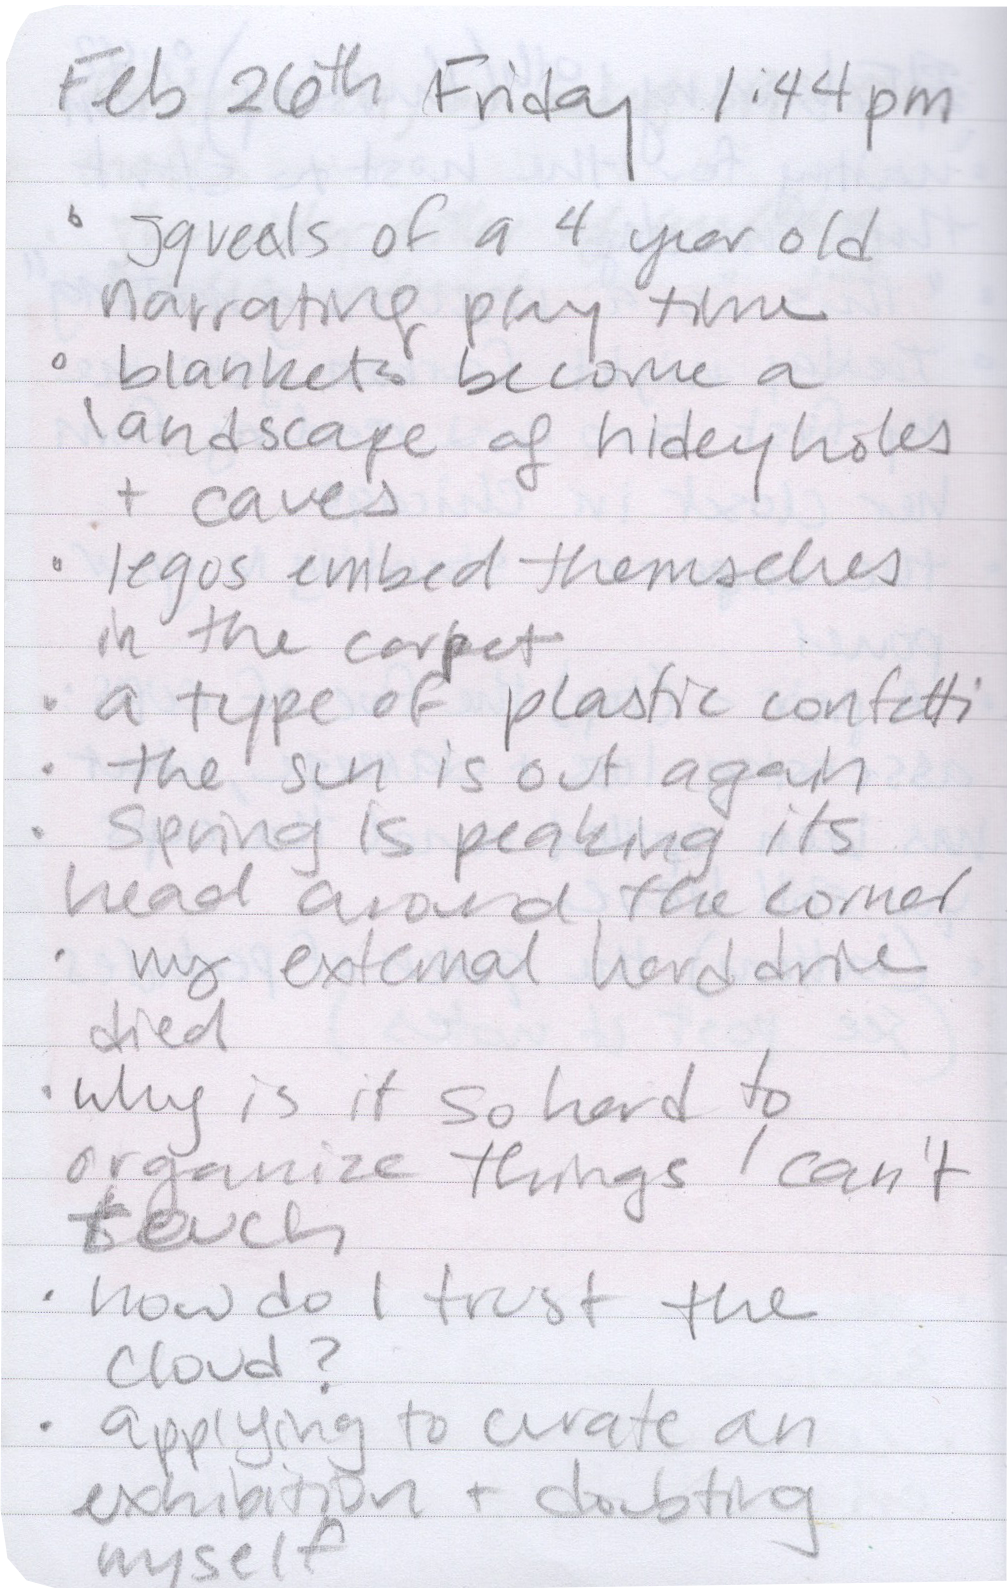 Feb 26th Friday 1:44pm
• squeals of a 4 year old
narrating play time
• blankets become a
landscape of hideyholes
+ caves
• legos embed themselves
in the carpet
• a type of plastic confetti
• the sun is out again
• Spring is peaking its
head around the corner
• my external harddrive
died
• why is it so hard to
organize things I can't
touch
• how do I trust the
cloud?
• applying to curate an
exhibition + doubting
myself